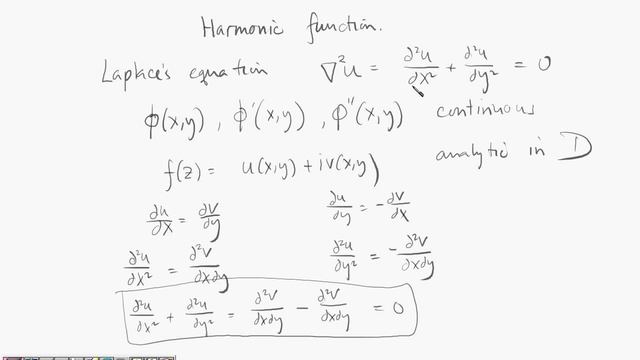 Harmonic function.
Laplace's equation ∇²u = ∂²u/∂x² + ∂²u/∂y² = 0
ϕ(x,y) , ϕ'(x,y) , ϕ''(x,y) continuous
f(z) = u(x,y) + iv(x,y) analytic in D
∂u/∂x = ∂v/∂y ∂u/∂y = -∂v/∂x
∂²u/∂x² = ∂²v/∂x∂y ∂²u/∂y² = -∂²v/∂x∂y
∂²u/∂x² + ∂²u/∂y² = ∂²v/∂x∂y - ∂²v/∂x∂y = 0